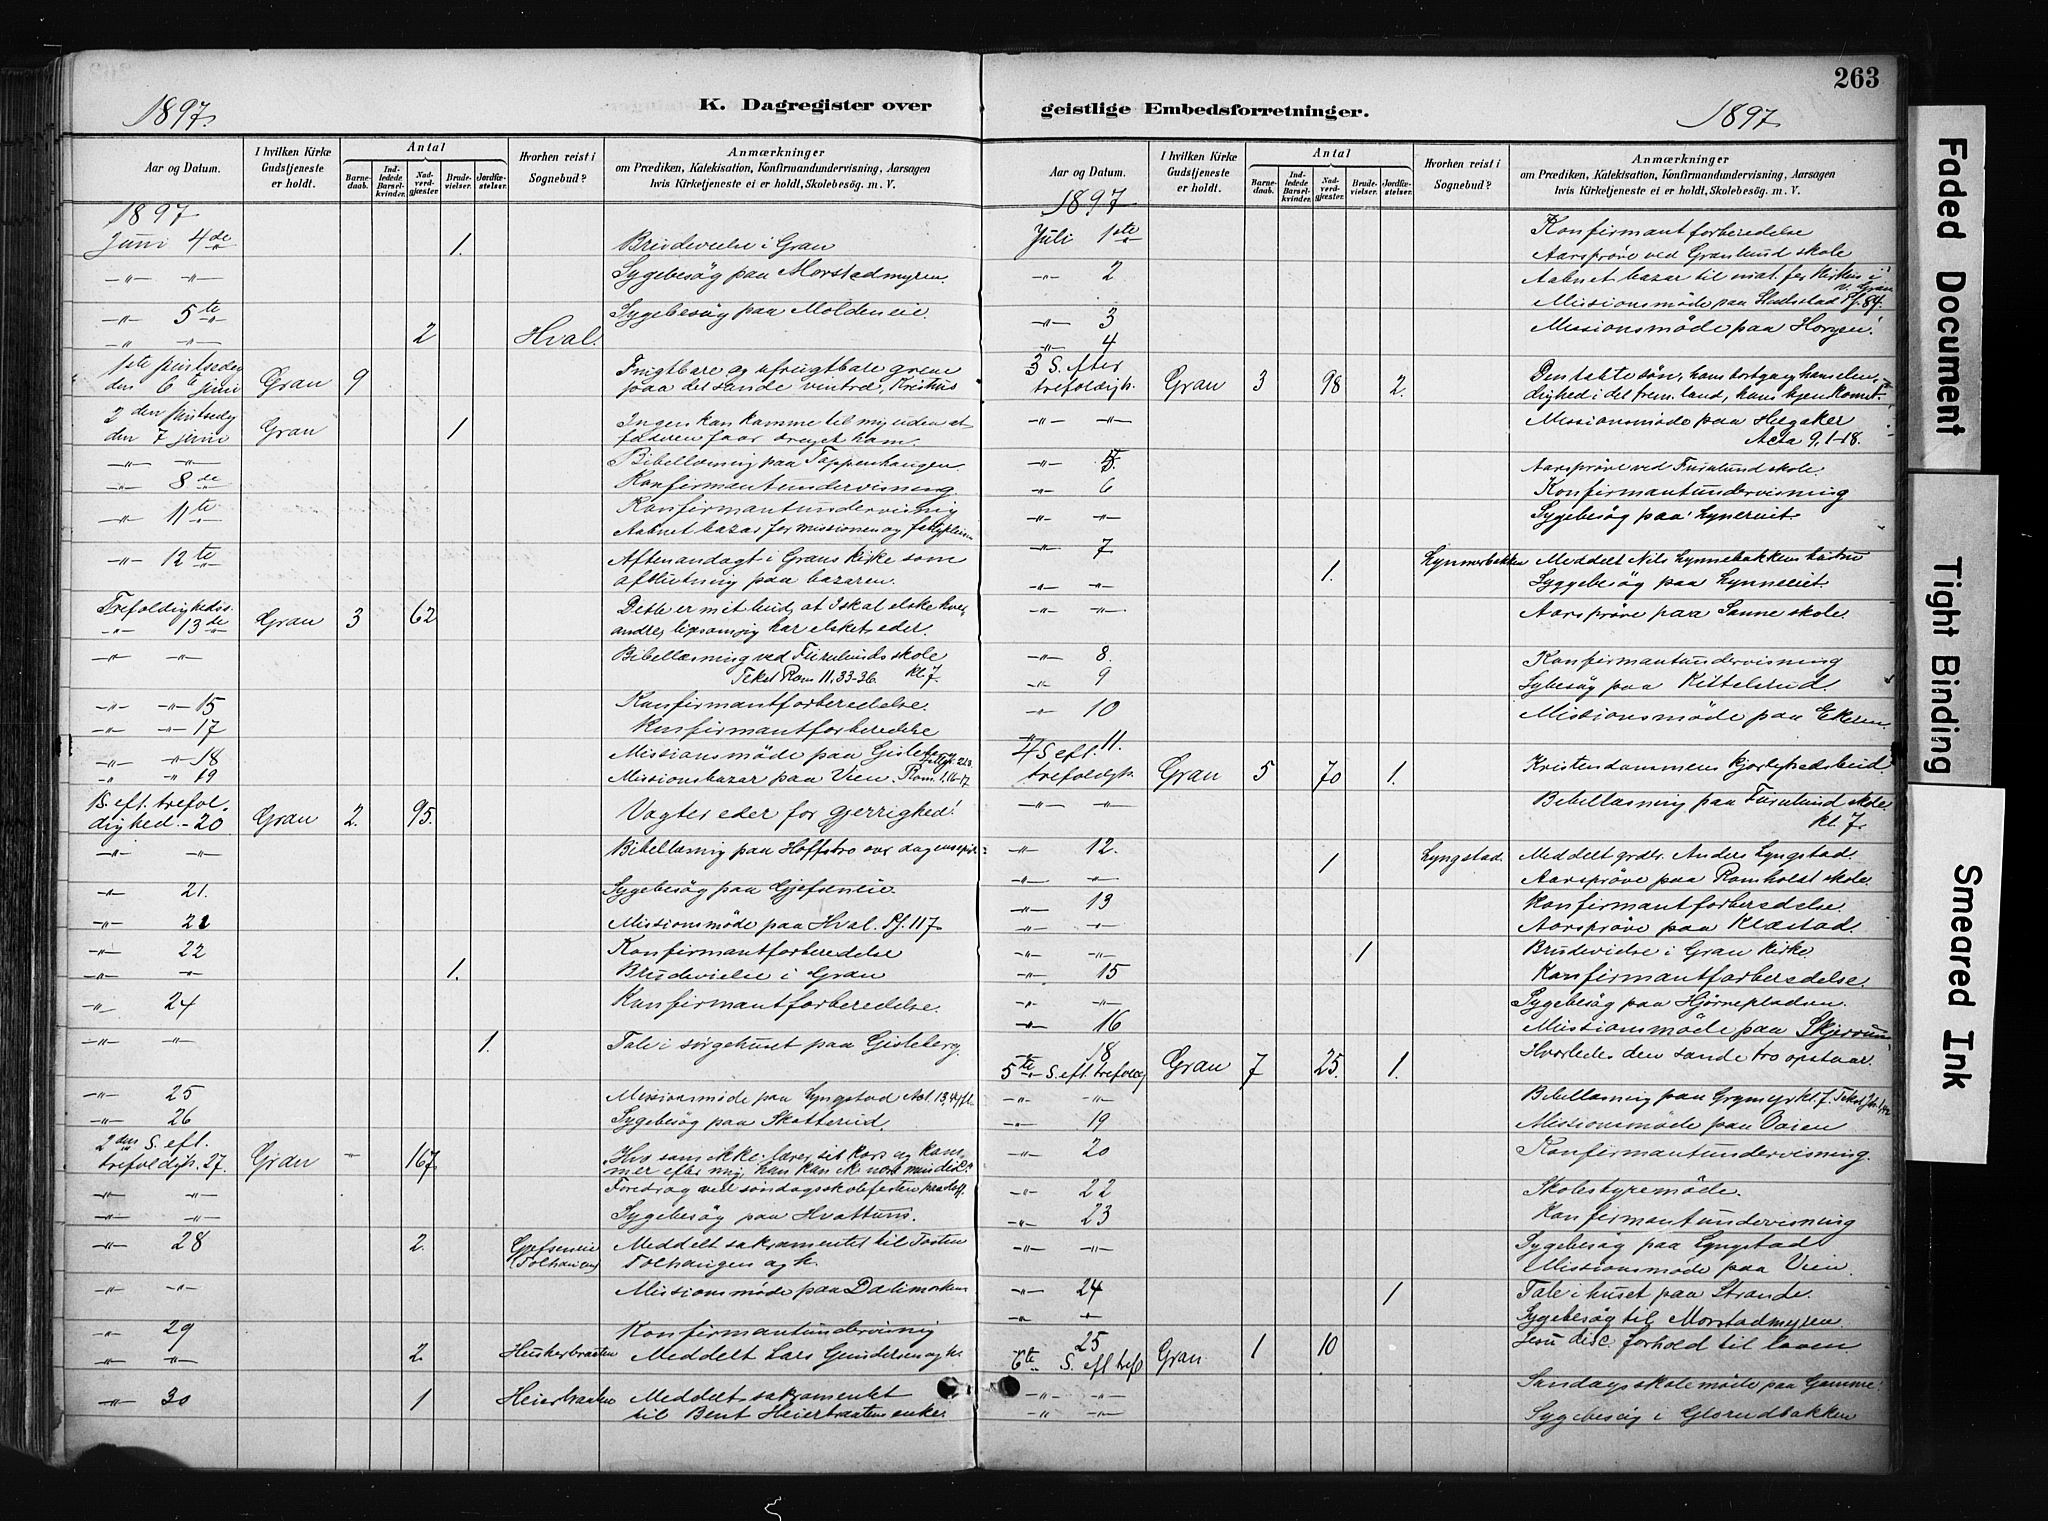 263
1897.
K. Dagregister over
geistlige Embedsforretninger.
1897.
Aar og Datum.
I hvilken Kirke Gudstjeneste er holdt.
Antal
Barnedaab.
Indledede Barselkvinder.
Nadverdgjester.
Brudevielser.
Jordfæstelser.
Hvorhen reist i Sognebud?
Anmærkninger
om Prædiken, Katekisation, Konfirmandundervisning, Aarsagen
hvis Kirketjeneste ei er holdt, Skolebesøg. m. V.
1897
Juni 4de 1. Brudevielse i Gran
-"- -"- Sygebesøg paa Morstadmyren.
-"- 5te Sygebesøg paa Moldeneie.
" " 2 Hval.
1ste pintsedag
den 6te juni Gran 9 Frugtbare og ufrugtbare grene
paa det sande ventræ, Kristus
2den pintsedg
den 7 juni Gran 1 Ingen kan komme til mig uden at
faderen faar draget ham.
-"- -"- Bibellæsning paa Toppenhaugen
-"- 8de Konfirmantundervisning
-"- 11te Konfirmantundervisnig
Aabnet bazar for missionen og
-"- 12te Aftenandagt i Grans kirke som
afslutning paa bazaren.
Trefoldighedss.
-"- 13de Gran 3 62 Dette er mit bud, at I skal elske hver-
andre, har elsket eder.
-"- -"- Bibellæsning ved Furulunds skole
Tekst Rom 11.33-36. kl 7.
-"- -"- 15 Konfirmantforberedelse.
-"- -"- 17 Konfirmantforberedelse
-"- -"- 18 Missionsmøde paa Gisleberg
" " 19 Missionsbazar paa Vien. Rom. 1,16-17
1 S. eft. trefol-
dighed. -20 Gran 2. 95. Vogter eder for gjerrighed!
-"- -"- Bibellæsnig paa Hoffstro over dagens
-"- 21. Sygebesøg paa Gjefseneie.
-"- 21 Missionsmøde paa Hval. Sf. 117.
-"- 22 Konfirmantforberedelse
-"- -"- 1. Brudevielse i Gran
-"- 24 Konfirmantforberedelse.
-"- -"- 1. Tale i sørgehuset paa Gisleberg.
-"- 25 Missionsmøde paa Lyngstad Act. 13,
-"- 26 Sygebesøg paa Skatterud.
2den S. eft.
trefoldigh. 27. Gran - 167 Hvo som ikke bærer sit kors og kom-
mer efter mig, han kan ik. være min disc."
-"- -"- Foredrag ved søndagsskolefesten paa Hoff.
-"- -"- Sygebesøg paa Hvattums.
-"- 28 2. Gjefseneie
(Tolhaugen) Meddelt sakramentet til Torsten
Tolhaugen og k.
-"- -"- Missionsmøde paa Dalemarken
-"- 29 Konfirmantundervisnig
-"- -"- 2. Huskerbraaten Meddelt Lars Gundersen og k.
-"- 30 1 Heierbraaten Meddelt sakramentet
til Bent Heierbraatens enke.
Aar og Datum.
I hvilken Kirke Gudstjeneste er holdt.
Antal
Barnedaab.
Indledede Barselkvinder.
Nadverdgjester.
Brudevielser.
Jordfæstelser.
Hvorhen reist i Sognebud?
Anmærkninger
om Prædiken, Katekisation, Konfirmandundervisning, Aarsagen
hvis Kirketjeneste ei er holdt, Skolebesøg. m. V.
1897
Juli 1ste Konfirmantforberedelse
Aarsprøve ved Granlund skole
-"- 2 Aabnet bazar til for kirken i
Gran
Missionsmøde paa 84.
-"- 3 Missionsmøde paa Horgen.
-"- 4
3 S. efter
trefoldigh. Gran 3 98 2. Den tabte søn, hans bortgang, hans elen-
dighed i det frem. land, hans hjemkomst.
-"- -"- Missionsmøde paa Hegaker
Acta 9.1-18.
-"- 5 Aarsprøve ved Furulund skole.
-"- 6 Konfirmantundervisning
-"- -"- Sygebesøg paa Lynneeiet.
-"- 7 1. Lynnerbakken Meddelt Nils Lynnebakkens hustru
-"- -"- Syggebesøg paa Lynneeiet.
-"- -"- Aarsprøve paa Sanne skole.
-"- 8. Konfirmantundervisning
-"- 9 Sybesøg paa Kittelsrud.
-"- 10 Missionsmøde paa Ekeren
" 11.
4 S eft.
trefoldgh. Gran 5 70 1. Kristendommens kjærlighedsbud.
-"- -"- Bibellæsning paa Furulund skole.
kl. 7.
-"- 12. 1 Lyngstad. Meddelt grdbr. Anders Lyngstad.
-"- -"- Aarsprøve paa Ramholdt skole.
-"- 13 Konfirmantforberedelse.
-"- -"- Aarsprøve paa Klæstad.
-"- -"- 1 Brudevielse i Gran kirke
-"- 15 Konfirmantforberedelse.
-"- -"- Sygebesøg paa Hjørnepladsen.
-"- 16 Missionsmøde paa Skjervum
18
5te S. eft. trefoldg Gran 7 25. 1. Hvorledes den sande tro opstaar.
-"- -"- Bibellæsning paa Grymyr kl. 7. Tekst
-"- 19 Missionsmøde paa Vaien
-"- 20 Konfirmantundervisning.
-"- 22 Skolestyremøde.
-"- 23 Konfirmantundervisning
-"- -"- Sygebesøg paa Lyngstad
Missionsmøde paa Vien.
-"- 24 1 Tale i huset paa Strande.
-"- -"- Sygebesøg til Morstadmyren
25
6te S. eft tref Gran. 1 10 Jesu disc. forhold til loven
-"- -"- Søndagsskolemøde paa Gamme.
-"- -"- Sygebesøg i Glorudbakken
Faded Document
Tight Binding
Smeared Ink